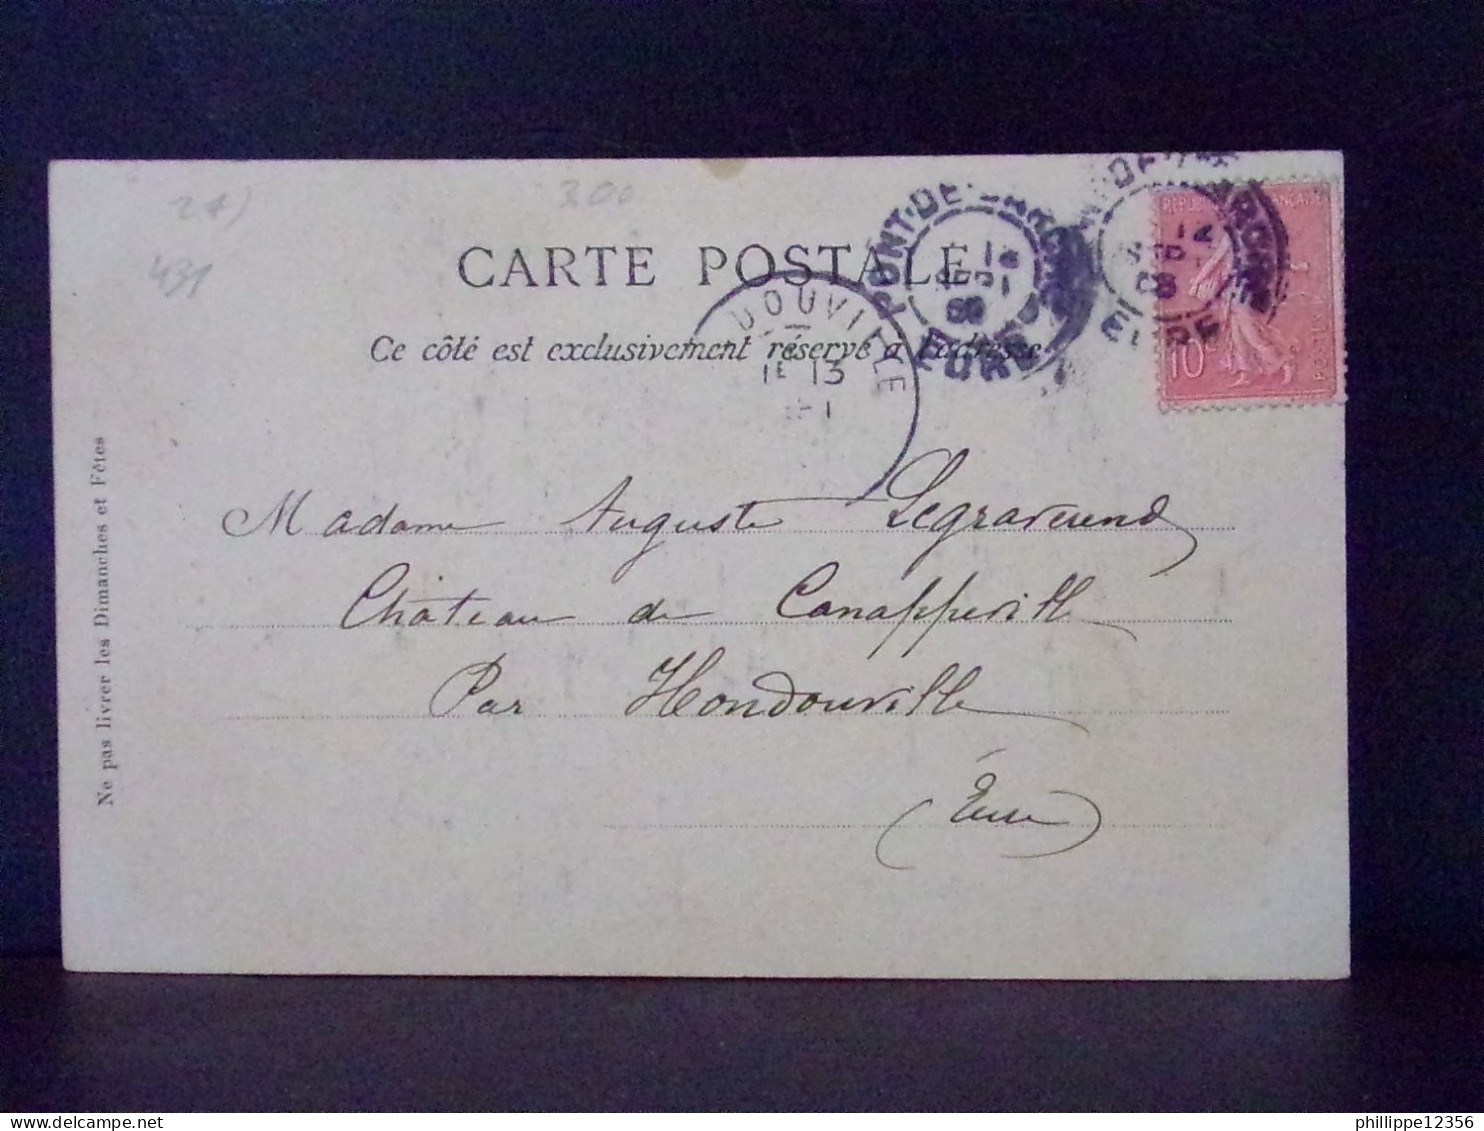 27)
431
300
CARTE POSTALE
Ce côté est exclusivement réservé à l'adresse
PONT-DE-L'ARCHE
EURE
DOUVILLE
13
RÉPUBLIQUE FRANÇAISE
10c
POSTES
12
EURE
Madame Auguste Legraverend
Château de Canappeville
Par Hondouville
(Eure)
Ne pas livrer les Dimanches et Fêtes
phillippe12356